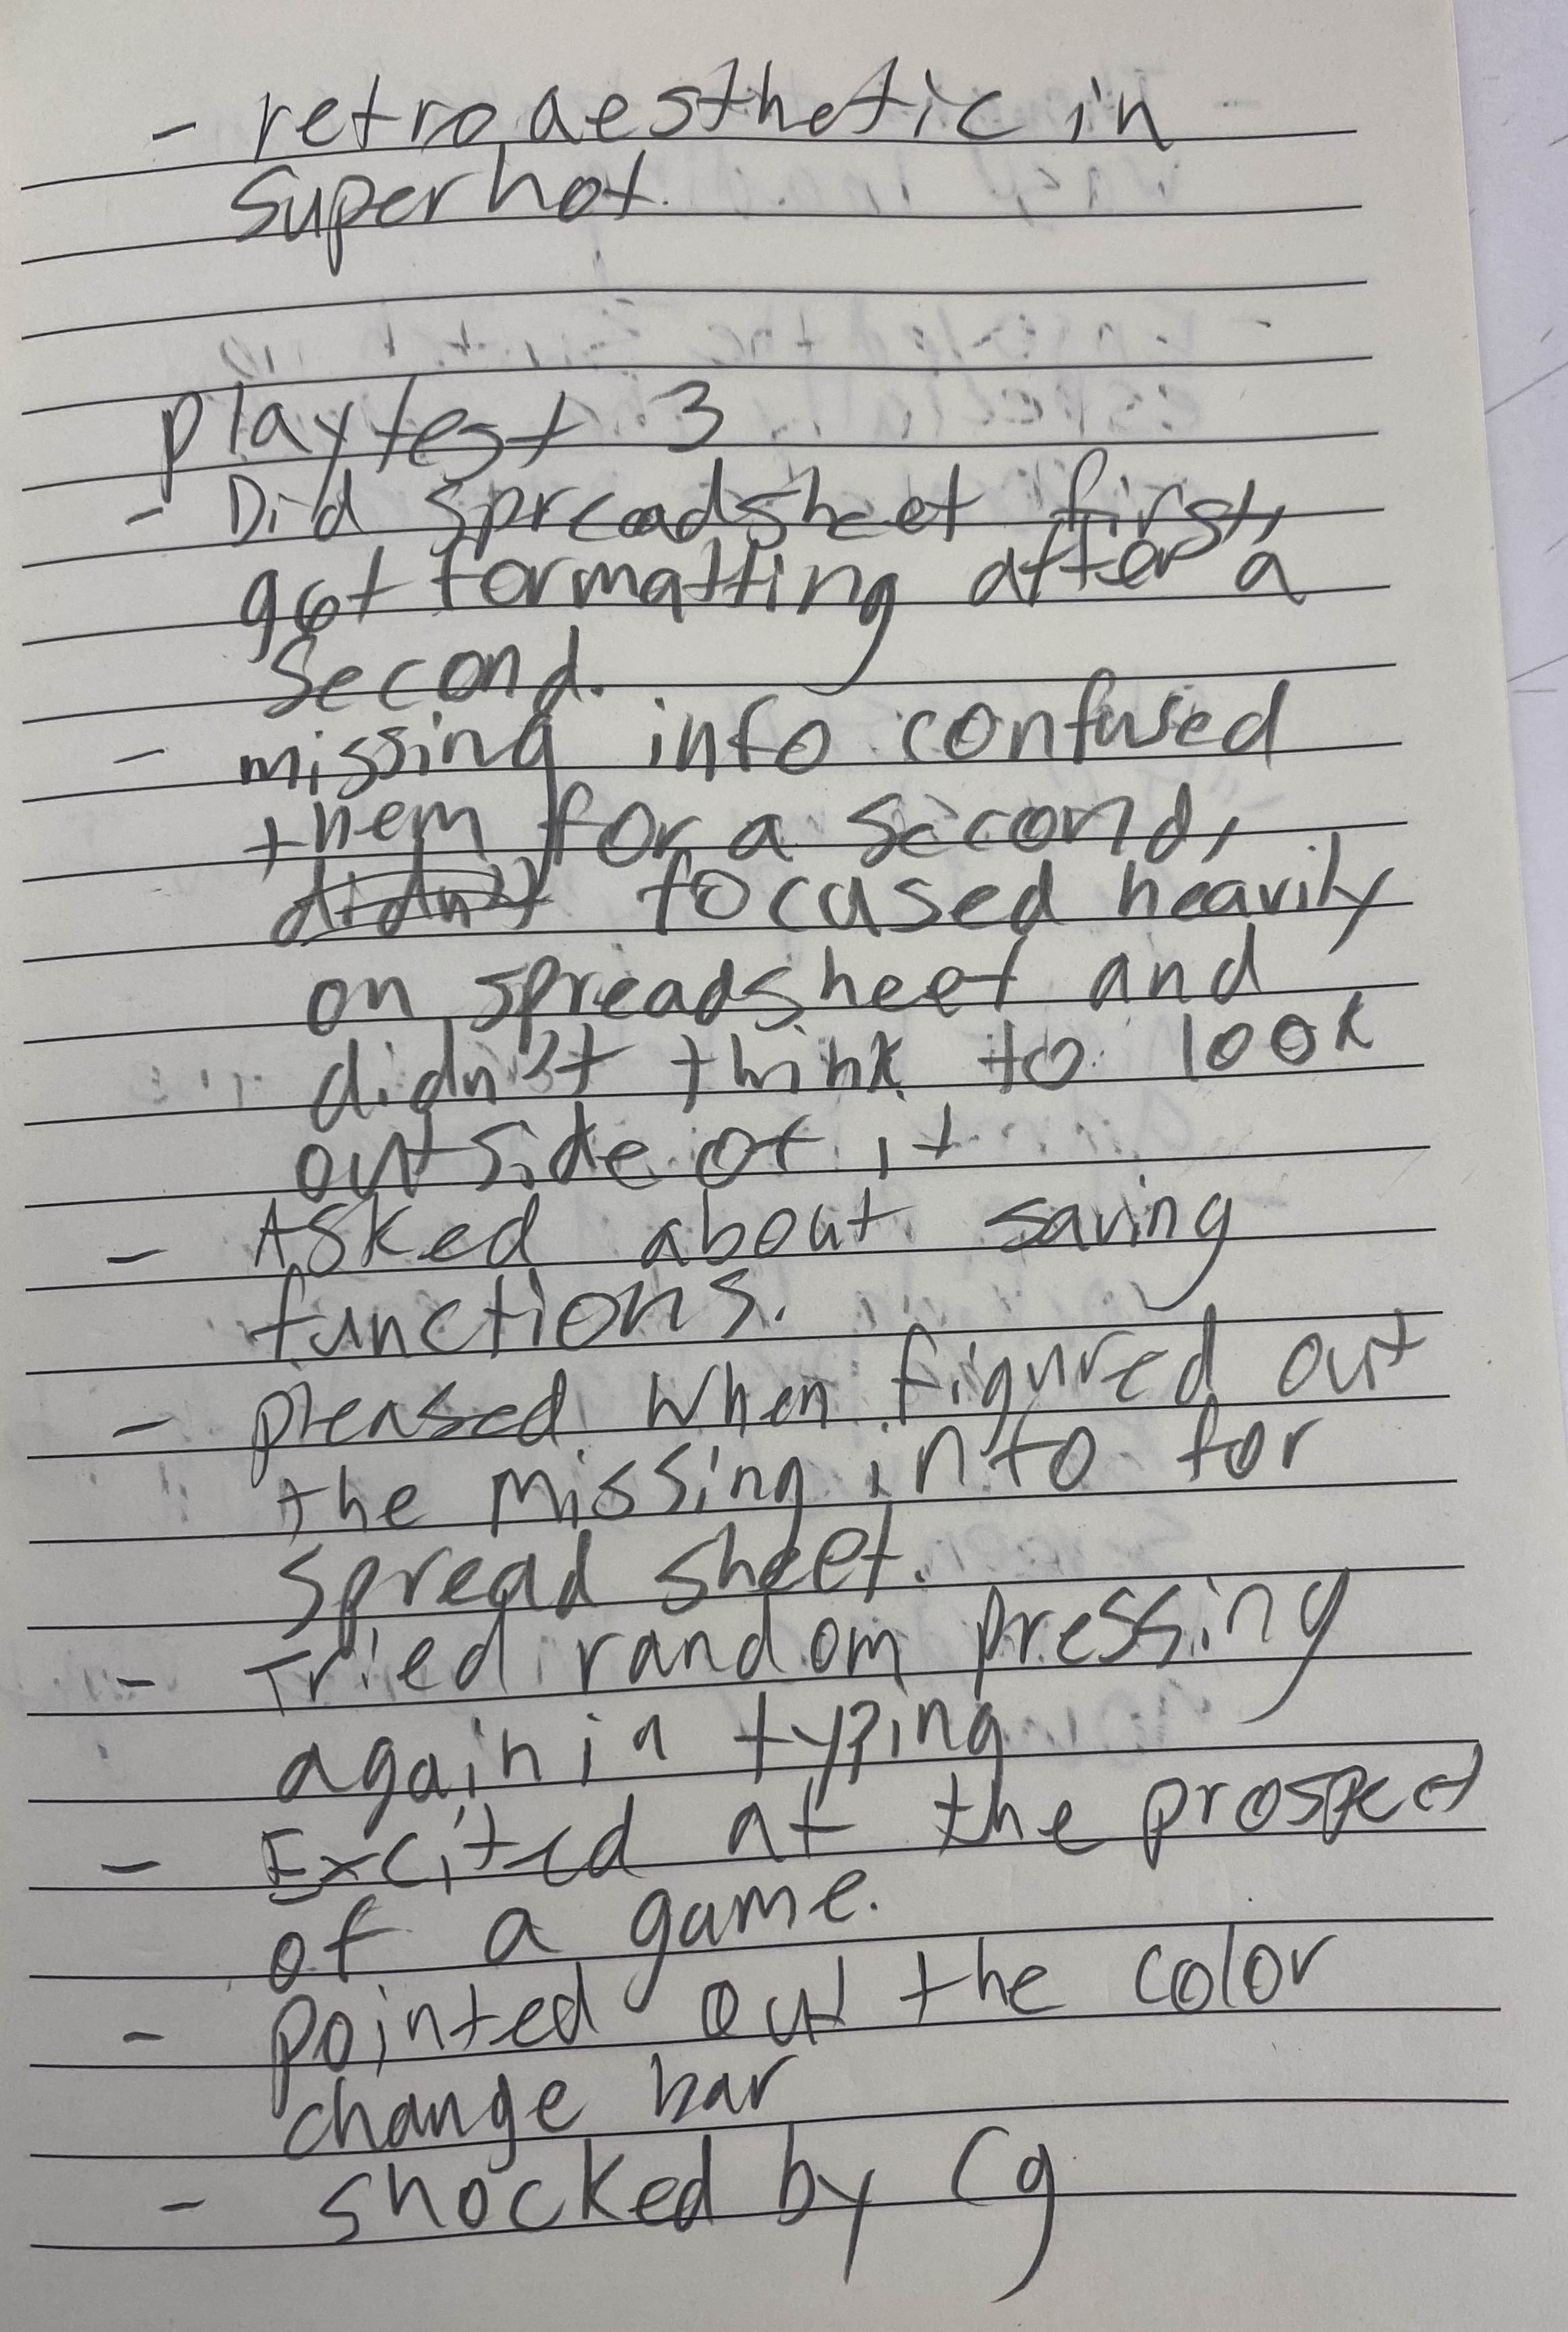 - retro aesthetic in
Superhot.
playtest 3
- Did spreadsheet first,
got formatting after a
second.
- missing info confused
them for a second,
didn't focused heavily
on spreadsheet and
didn't think to look
outside of it
- Asked about saving
functions.
- pleased when figured out
the missing info for
spread sheet.
- Tried random pressing
again in typing
- Excited at the prospect
of a game.
- pointed out the color
change bar
- shocked by Cg